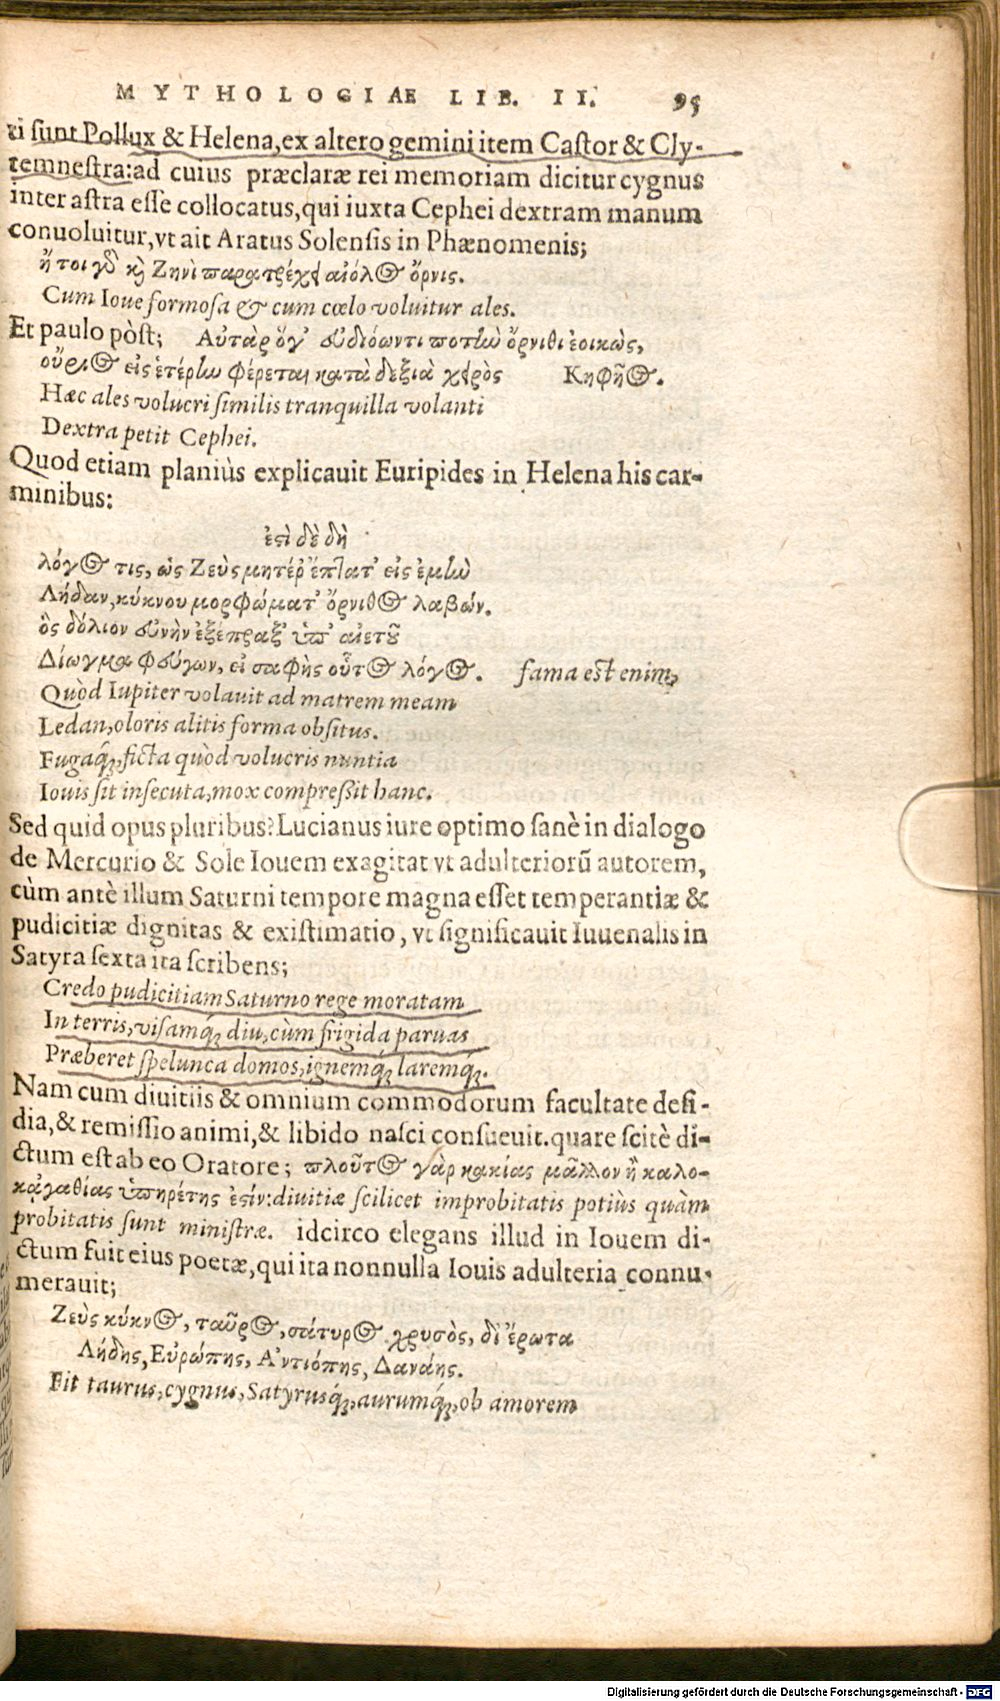 MYTHOLOGIAE LIB. II. 95
ti sunt Pollux & Helena, ex altero gemini item Castor & Cly-
temnestra: ad cuius præclaræ rei memoriam dicitur cygnus
inter astra esse collocatus, qui iuxta Cephei dextram manum
conuoluitur, vt ait Aratus Solensis in Phænomenis;
ἤτοι γὸ κὴ Ζηνὶ παρατρέχει αἰόλος ὄρνις.
Cum Ioue formosa & cum cœlo voluitur ales.
Et paulo pòst; Αὐτὰρ ὅγ' εὐδιόωντι ποτὴν ὄρνιθι ἐοικὼς,
οὔριος εἰς ἑτέρην φέρεται κατὰ δεξιὰ χειρὸς Κηφῆος.
Hæc ales volucri similis tranquilla volanti
Dextra petit Cephei.
Quod etiam planiùs explicauit Euripides in Helena his car-
minibus:
ἐστὶ δὲ δὴ
λόγος τις, ὡς Ζεὺς μητέρ' ἔπτατ' εἰς ἐμὴν
Λήδαν, κύκνου μορφώματ' ὄρνιθος λαβών.
ὃς δόλιον εὐνὴν ἐξέπραξ' ὑπ' αἰετοῦ
Δίωγμα φεύγων, εἰ σαφὴς οὗτος λόγος. fama est enim,
Quòd Iupiter volauit ad matrem meam
Ledan, oloris alitis forma obsitus.
Fugaq́;, ficta quòd volucris nuntia
Iouis sit insecuta, mox compreßit hanc.
Sed quid opus pluribus? Lucianus iure optimo sanè in dialogo
de Mercurio & Sole Iouem exagitat vt adulteriorũ autorem,
cùm antè illum Saturni tempore magna esset temperantiæ &
pudicitiæ dignitas & existimatio, vt significauit Iuuenalis in
Satyra sexta ita scribens;
Credo pudicitiam Saturno rege moratam
In terris, visamq́; diu, cùm frigida paruas
Præberet spelunca domos, ignemq́; laremq́;.
Nam cum diuitiis & omnium commodorum facultate desi-
dia, & remissio animi, & libido nasci consueuit. quare scitè di-
ctum est ab eo Oratore; πλοῦτος γὰρ κακίας μᾶλλον ἢ καλο-
κἀγαθίας ὑπηρέτης ἐστίν: diuitiæ scilicet improbitatis potiùs quàm
probitatis sunt ministræ. idcirco elegans illud in Iouem di-
ctum fuit eius poetæ, qui ita nonnulla Iouis adulteria connu-
merauit;
Ζεὺς κύκνος, ταῦρος, σάτυρος χρυσὸς, δι' ἔρωτα
Λήδης, Εὐρώπης, Ἀντιόπης, Δανάης.
Fit taurus, cygnus, Satyrusq́;, aurumq́;, ob amorem
Digitalisierung gefördert durch die Deutsche Forschungsgemeinschaft - DFG